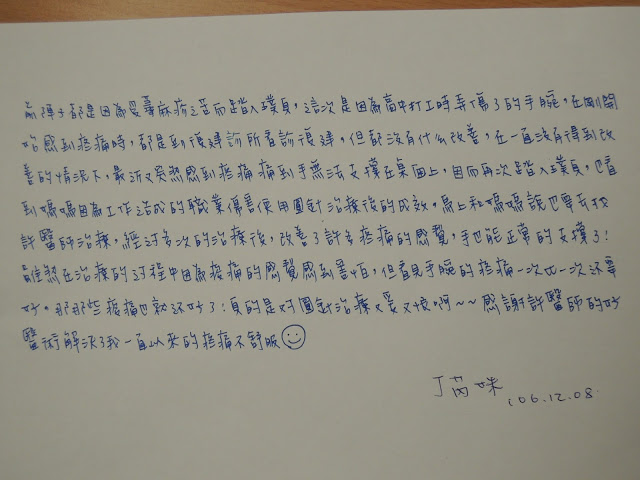 前陣子都是因為受蕁麻疹之苦而踏入璞真，這次是因為高中打工時弄傷了的手腕，在剛開
始感到疼痛時，都是到復建診所看診復建，但都沒有什么改善，在一直沒有得到改
善的情況下，最近又突然感到疼痛痛到手無法支撐在桌面上，因而再次踏入璞真，也看
到媽媽因為工作造成的職業傷害使用圓針治療後的成效，馬上和媽媽說也要去找
許醫師治療，經过多次的治療後，改善了許多疼痛的感覺，手也能正常的支撐了！
雖然在治療的过程中因為痠痛的感覺感到害怕，但看見手腕的疼痛一次比一次还要
好，那那些痠痛也就还好了！真的是对圓針治療又愛又恨啊～～感謝許醫師的好
醫術解決了我一直以來的疼痛不舒服
丁 咪 106.12.08.